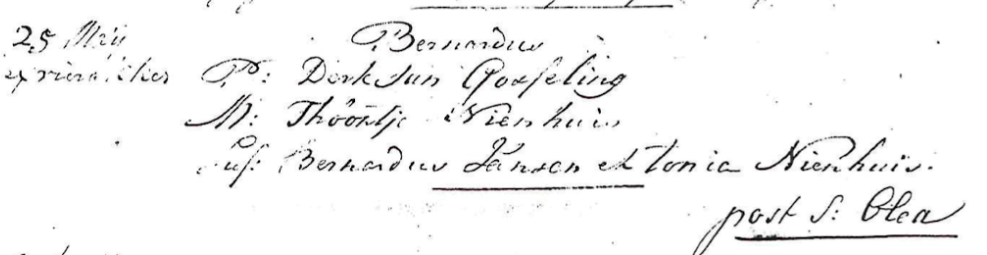 25 Meij Bernardus
P: Derk Jan Goesseling
M: Thöontje Nienhuis
Susc: Bernardus Jansen et Tonia Nienhuis.
post S: Olea